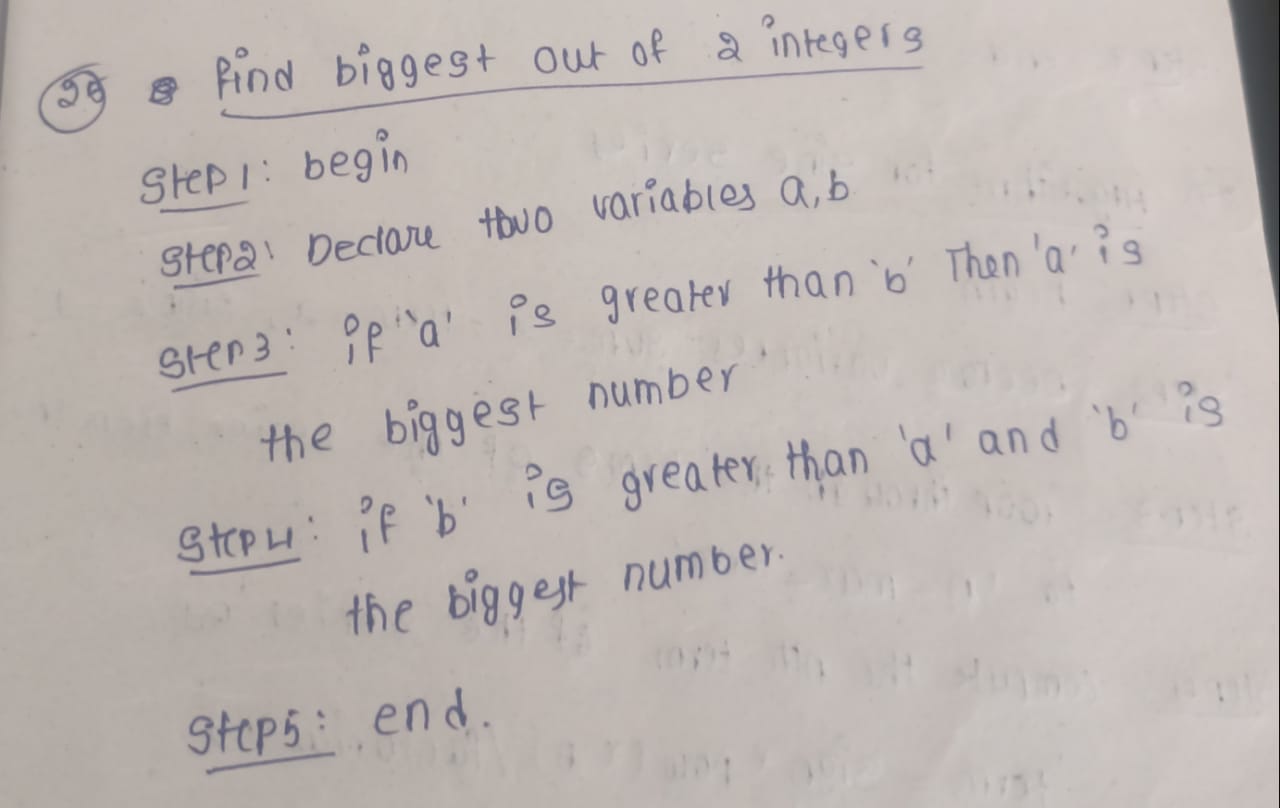 find biggest out of 2 integers
Step1: begin
Step2: Declare two variables a,b
Step3: if 'a' is greater than 'b' Then 'a' is
the biggest number
Step4: if 'b' is greater than 'a' and 'b' is
the biggest number.
Step5: end.